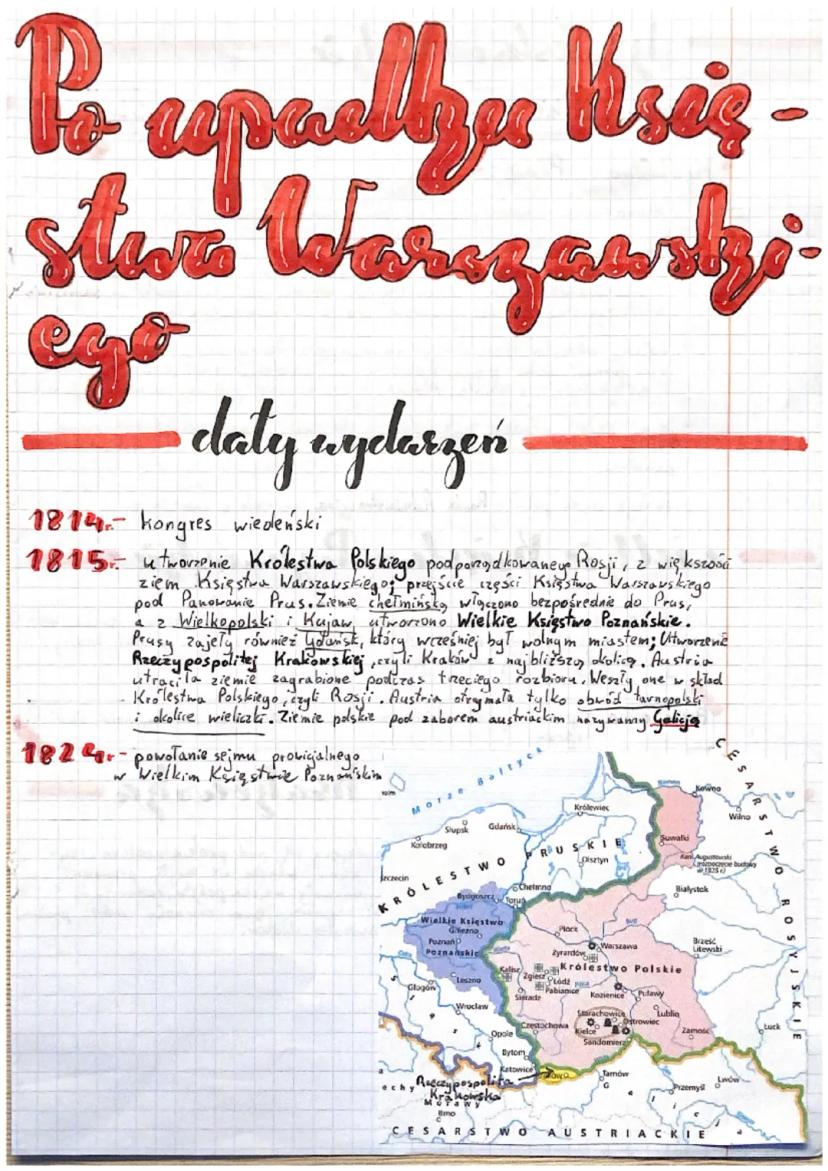 Po upadku Księ-
stwa Warszawski-
ego
daty wydarzeń
1814r.- kongres wiedeński
1815r.- utworzenie Królestwa Polskiego podporządkowanego Rosji, z większości
ziem Księstwa Warszawskiego; przejście części Księstwa Warszawskiego
pod Panowanie Prus. Ziemie chełmińską włączono bezpośrednie do Prus,
a z Wielkopolski i Kujaw utworzono Wielkie Księstwo Poznańskie.
Prusy zajęły również Gdańsk, który wcześniej był wolnym miastem; Utworzenie
Rzeczypospolitej Krakowskiej, czyli Kraków z najbliższą okolicą. Austria
utraciła ziemie zagrabione podczas trzeciego rozbioru. Weszły one w skład
Królestwa Polskiego, czyli Rosji. Austria otrzymała tylko obwód tarnopolski
i okolice wieliczki. Ziemie polskie pod zaborem austriackim nazywamy Galicją
1824r.- powołanie sejmu prowicjalnego
w Wielkim Księstwie Poznańskim
Morze Bałtyckie
CESARSTWO ROSYJSKIE
Kowno
Wilno
Królewiec
Słupsk
Gdańsk
Kołobrzeg
Suwałki
Kan. Augustowski
(rozpoczęcie budowy
w 1824 r.)
KRÓLESTWO PRUSKIE
Olsztyn
zczecin
Chełmno
Białystok
Bydgoszcz
Toruń
Wielkie Księstwo
Gniezno
Poznań
Poznańskie
Płock
Bug
Warszawa
Żyrardów
Brześć
Litewski
Kalisz
Zgierz
Łódź
Pabianice
Królestwo Polskie
Leszno
Głogów
Sieradz
Kozienice
Puławy
Wrocław
Śląsk
Starachowice
Lublin
Częstochowa
Kielce
Ostrowiec
Opole
Sandomierz
Zamość
Łuck
Bytom
Katowice
Tarnów
Rzeczypospolita
Krakowska
Galicja
Przemyśl
Lwów
echy
Morawy
Brno
CESARSTWO AUSTRIACKIE